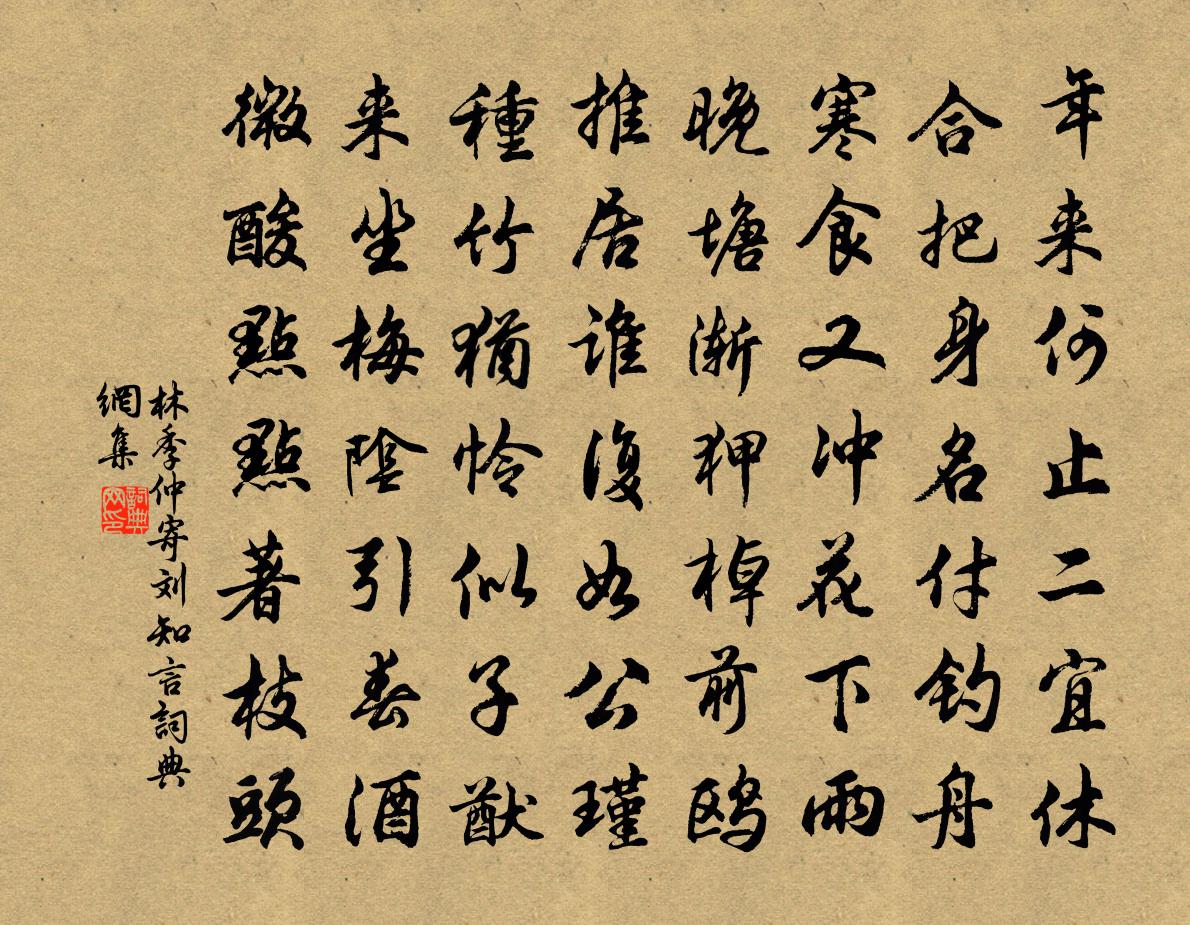 年来何止二宜休
合把身名付钓舟
寒食又冲花下雨
晚塘渐狎棹前鸥
推居谁復如公瑾
種竹猶怜似子猷
来坐梅陰引春酒
微酸點點著枝頭
林季仲寄刘知言詞典
網集
詞典
网印